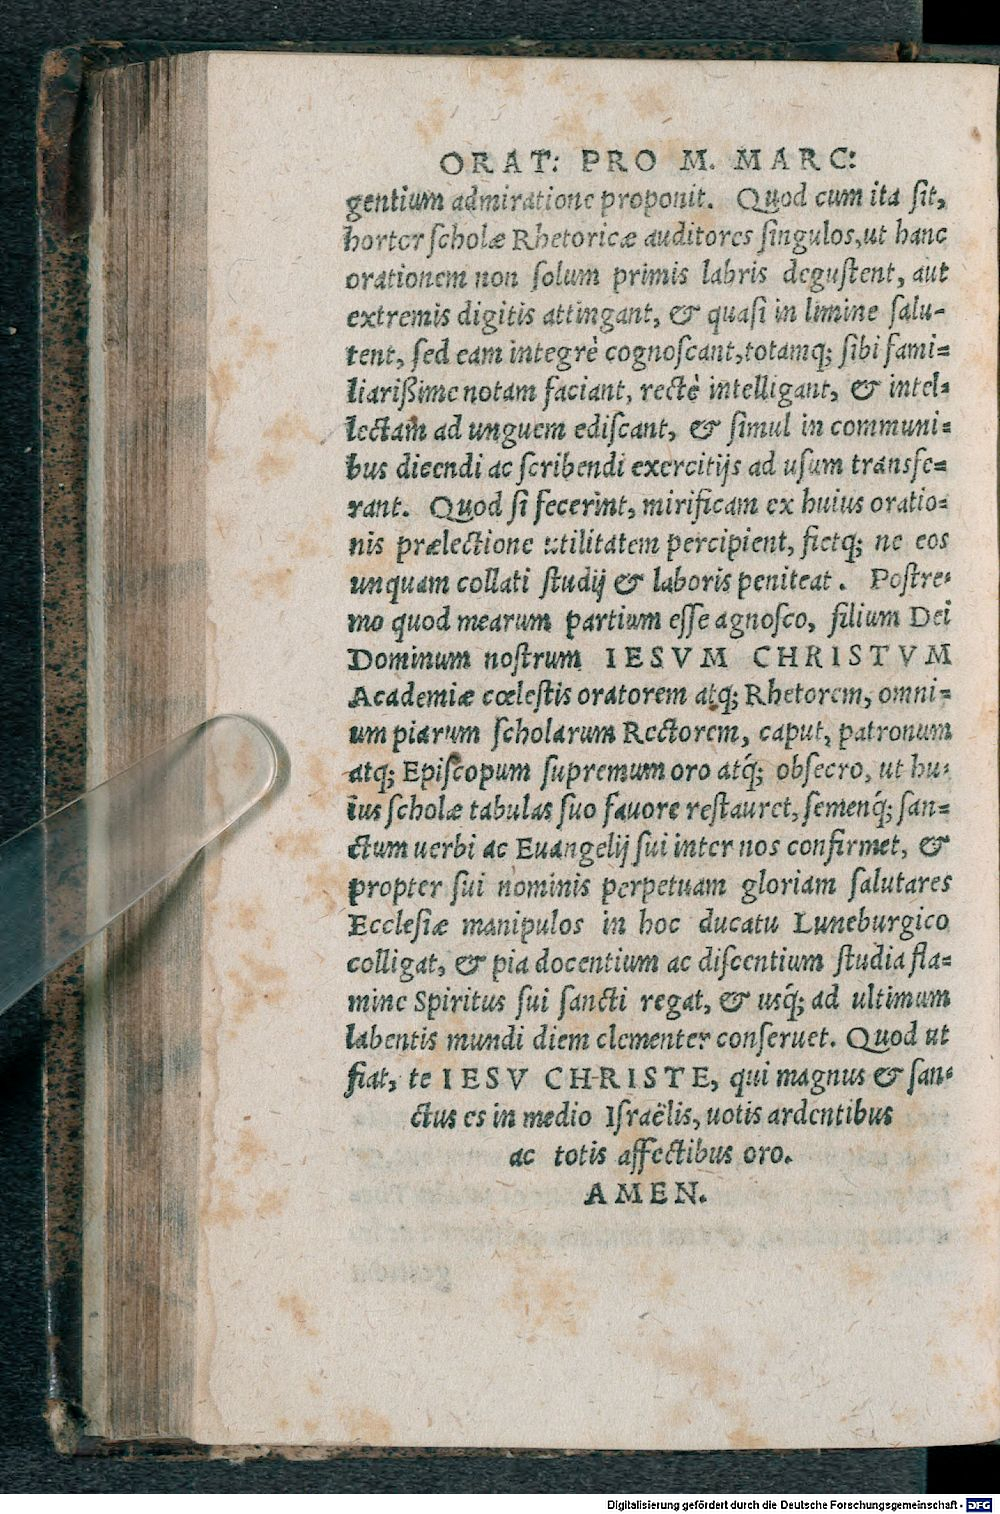 ORAT: PRO M. MARC:
gentium admiratione proponit. Quod cum ita sit,
hortor scholæ Rhetoricæ auditores singulos, ut hanc
orationem non solum primis labris degustent, aut
extremis digitis attingant, & quasi in limine salu-
tent, sed eam integrè cognoscant, totamq; sibi fami=
liarißime notam faciant, rectè intelligant, & intel=
lectam ad unguem ediscant, & simul in communi=
bus dicendi ac scribendi exercitijs ad usum transfe=
rant. Quod si fecerint, mirificam ex huius oratio=
nis prælectione utilitatem percipient, fietq; ne eos
unquam collati studij & laboris peniteat. Postre=
mo quod mearum partium esse agnosco, filium Dei
Dominum nostrum IESVM CHRISTVM
Academiæ cœlestis oratorem atq; Rhetorem, omni=
um piarum scholarum Rectorem, caput, patronum
atq; Episcopum supremum oro atq́; obsecro, ut hu=
ius scholæ tabulas suo favore restauret, semenq́; san=
ctum uerbi ac Euangelij sui inter nos confirmet, &
propter sui nominis perpetuam gloriam salutares
Ecclesiæ manipulos in hoc ducatu Luneburgico
colligat, & pia docentium ac discentium studia fla=
mine Spiritus sui sancti regat, & usq́; ad ultimum
labentis mundi diem clementer conseruet. Quod ut
fiat, te IESV CHRISTE, qui magnus & san=
ctus es in medio Israëlis, uotis ardentibus
ac totis affectibus oro.
AMEN.
Digitalisierung gefördert durch die Deutsche Forschungsgemeinschaft - DFG